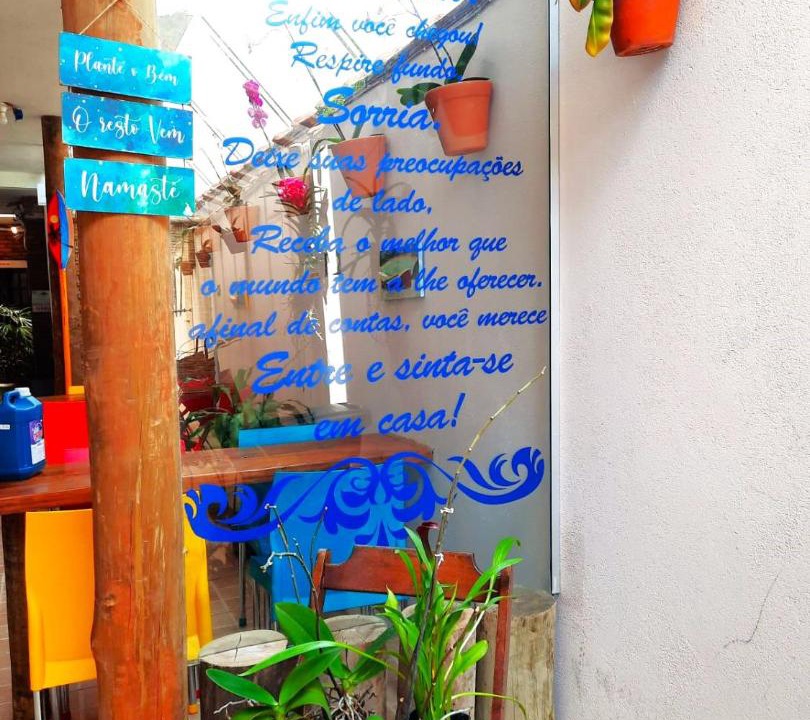 Plante o Bem
O resto Vem
Namastê
Enfim você chegou!
Respire fundo
Sorria.
Deixe suas preocupações
de lado,
Receba o melhor que
o mundo tem a lhe oferecer.
afinal de contas, você merece
Entre e sinta-se
em casa!